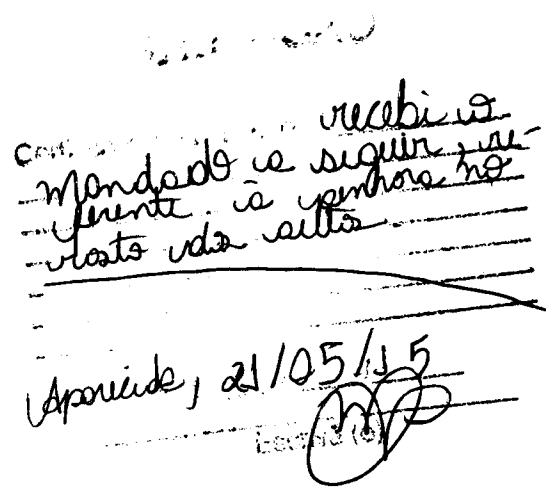 recebi o
mandado a seguir, re-
ferente à penhora no
rosto dos autos
Aparecida, 21/05/15